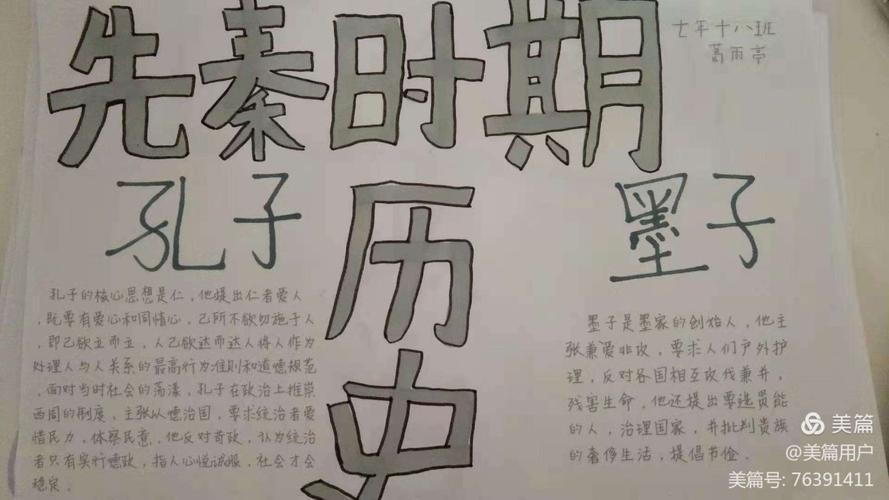 先秦时期
七年十八班
葛雨亭
历史
孔子
孔子的核心思想是仁，他提出仁者爱人
，既要有爱心和同情心，己所不欲勿施于人
，即己欲立而立，人己欲达而达人将人作为
处理人与人关系的最高行为准则和道德规范
，面对当时社会的荡漾，孔子在政治上推崇
西周的制度，主张从德治国，要求统治者爱
惜民力，体察民意，他反对苛政，认为统治
者只有实行德政，指人心悦诚服，社会才会
稳定。
墨子
墨子是墨家的创始人，他主
张兼爱非攻，要求人们户外护
理，反对各国相互攻伐兼并，
残害生命，他还提出要选贤能
的人，治理国家，并批判贵族
的奢侈生活，提倡节俭。
美篇
@美篇用户
美篇号: 76391411